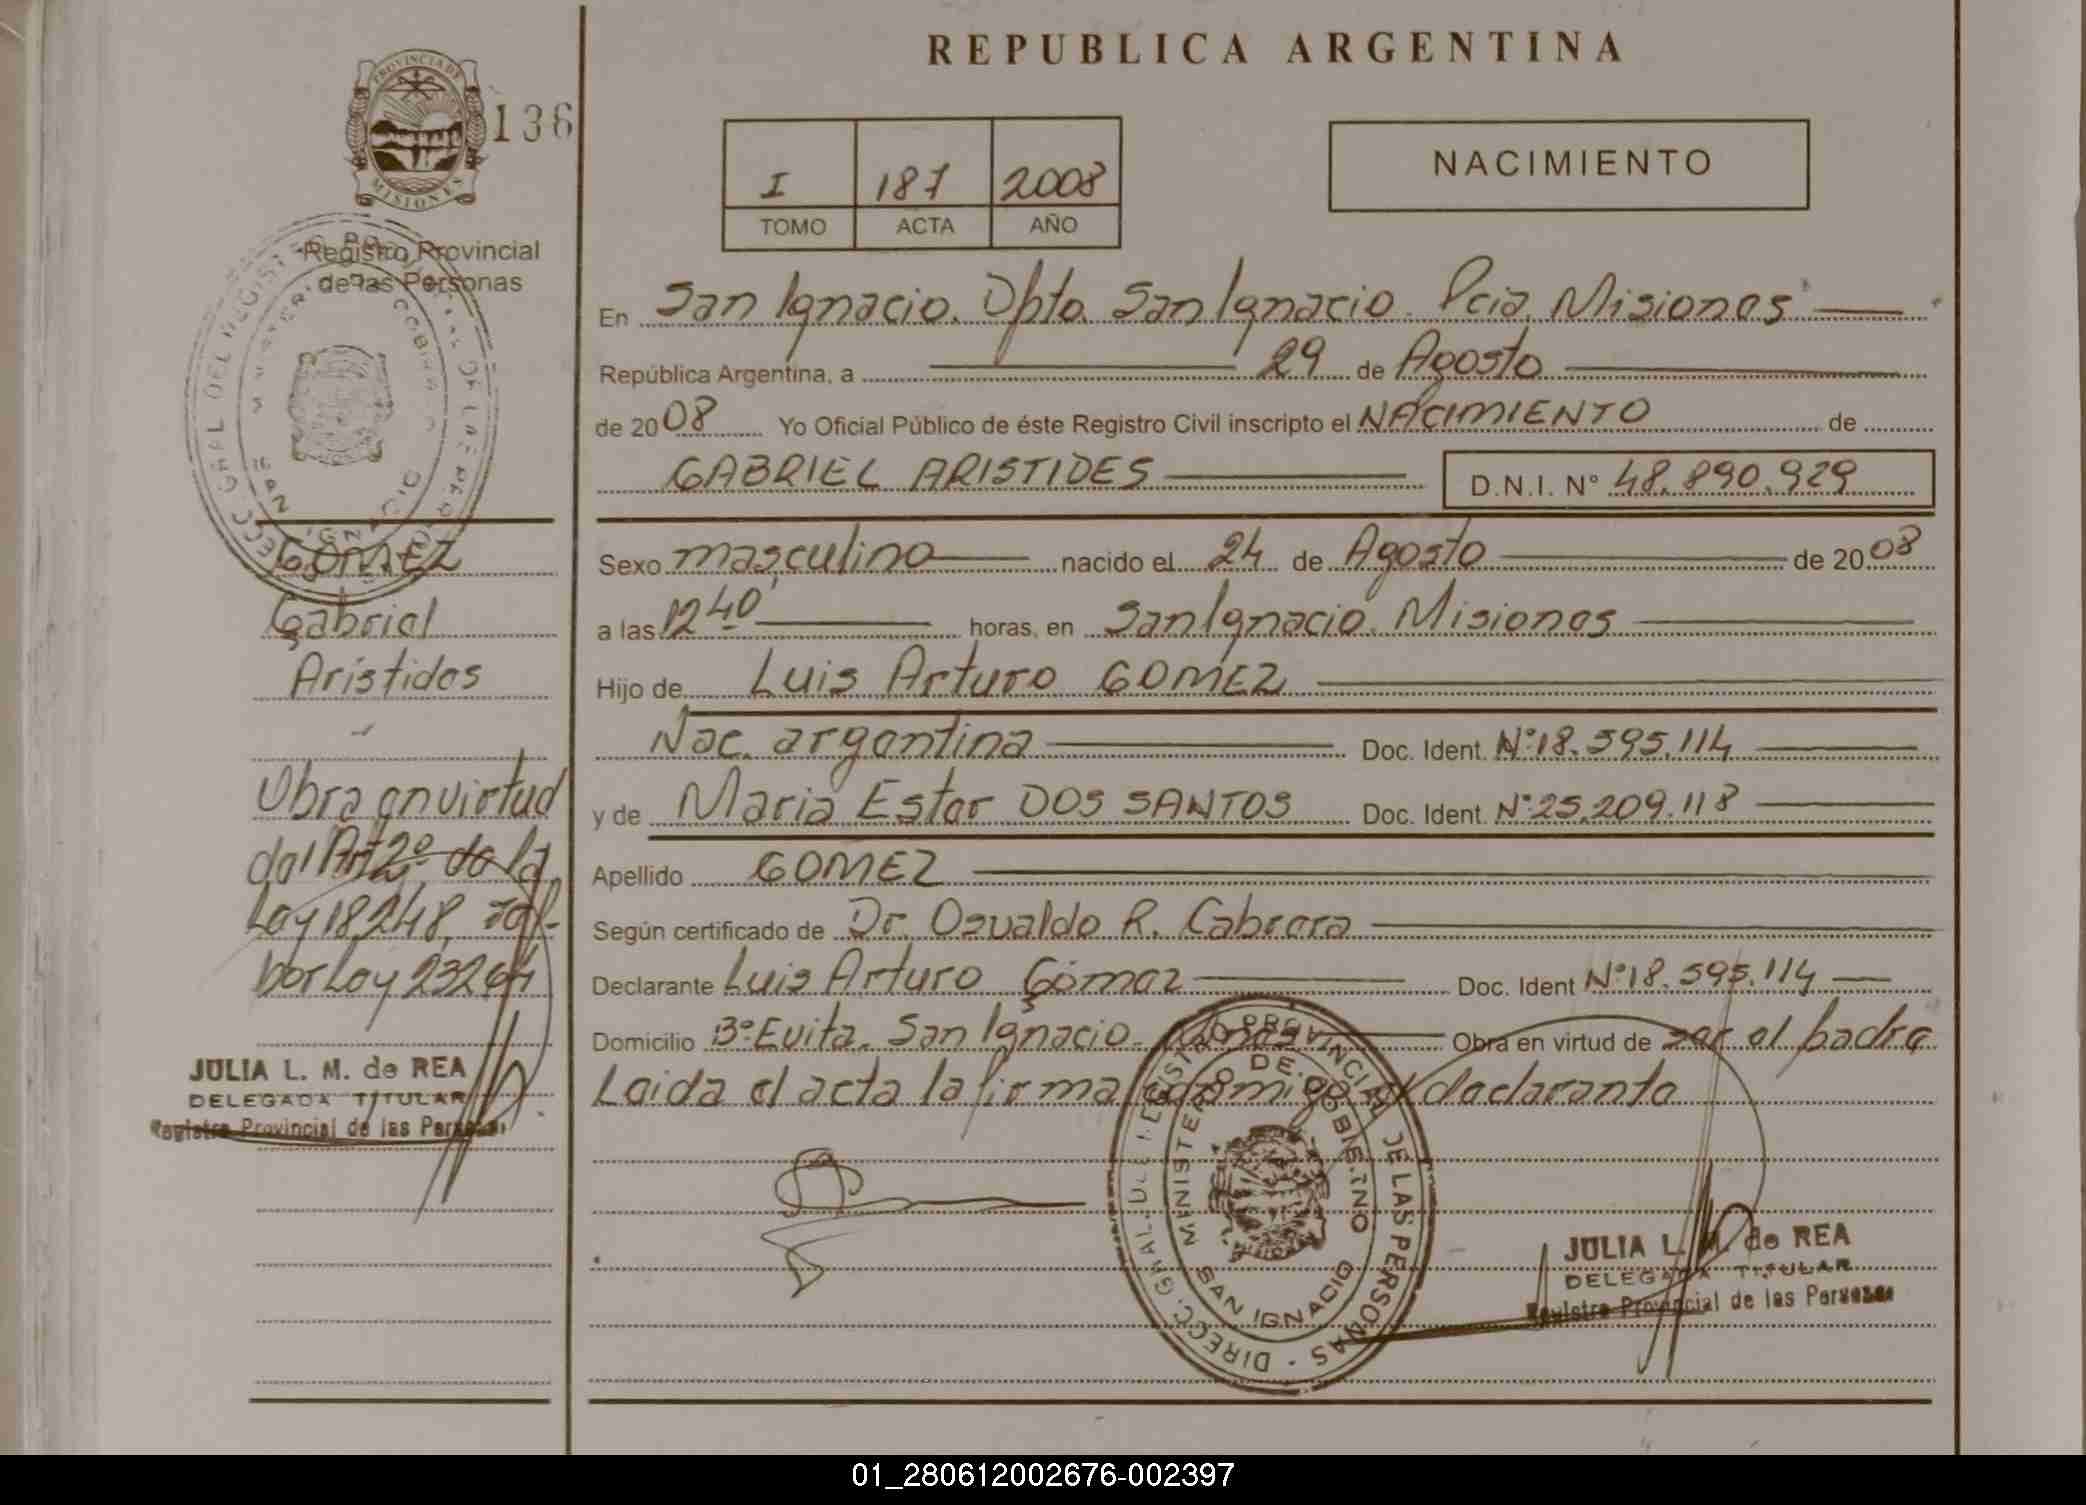 REPUBLICA ARGENTINA
PROVINCIA DE
MISIONES
136
I 187 2008
TOMO ACTA AÑO
NACIMIENTO
Registro Provincial
de las Personas
En San Ignacio. Dpto. San Ignacio. Pcia. Misiones
República Argentina, a 29 de Agosto
de 2008 Yo Oficial Público de éste Registro Civil inscripto el NACIMIENTO de
GABRIEL ARISTIDES D.N.I. N° 48.890.929
Sexo masculino nacido el 24 de Agosto de 2008
a las 12 40 horas, en San Ignacio. Misiones
Hijo de Luis Arturo GOMEZ
Nac. argentina Doc. Ident. N° 18.595.114
y de Maria Ester DOS SANTOS Doc. Ident. N° 25.209.118
Apellido GOMEZ
Según certificado de Dr. Osvaldo R. Cabrera
Declarante Luis Arturo Gómez Doc. Ident N° 18.595.114
Domicilio B° Evita. San Ignacio. Obra en virtud de ser el padre
Leida el acta la firma conmigo el declarante
DIRECC. GRAL. DEL REGISTRO PROVINCIAL DE LAS PERSONAS
MINISTERIO DE GOBIERNO
SAN IGNACIO
JULIA L. M. de REA
DELEGADA TITULAR
Registro Provincial de las Personas
GOMEZ
Gabriel
Aristides
Obra en virtud
del Art 2° de la
Ley 18.248, ref.
por Ley 23264
JULIA L. M. de REA
DELEGADA TITULAR
Registro Provincial de las Personas
DIRECC. GRAL DEL REGISTRO PROVINCIAL DE LAS PERSONAS
SAN IGNACIO
01_280612002676-002397